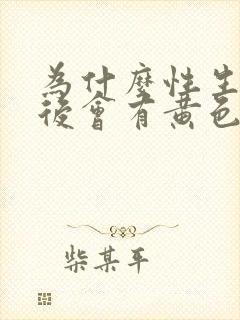 為什麼性生
後會有黃色
柴某平